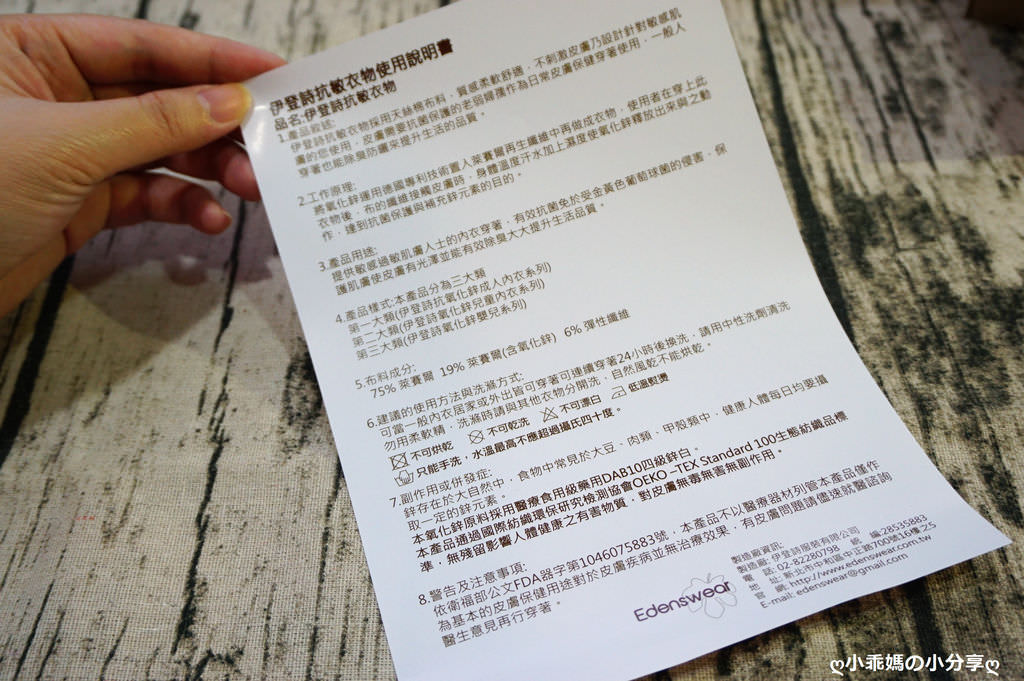 伊登詩抗敏衣物使用說明書
品名:伊登詩抗敏衣物
1.產品敘述:
伊登詩抗敏衣物採用天絲棉布料，質感柔軟舒適，不刺激皮膚乃設計針對敏感肌
膚的您使用，皮膚需要抗菌保護的老弱婦孺作為日常皮膚保健穿著使用，一般人
穿著也能除臭防癢來提升生活的品質。
2.工作原理:
將氧化鋅運用德國專利技術置入萊賽爾再生纖維中再做成衣物，使用者在穿上此
衣物後，布的纖維接觸皮膚時，身體溫度汗水加上濕度使氧化鋅釋放出來與之動
作，達到抗菌保護與補充鋅元素的目的。
3.產品用途:
提供敏感過敏肌膚人士的內衣穿著，有效抗菌免於受金黃色葡萄球菌的侵害，保
護肌膚使皮膚有光澤並能有效除臭大大提升生活品質。
4.產品樣式:本產品分為三大類
第一大類(伊登詩抗氧化鋅成人內衣系列)
第二大類(伊登詩抗氧化鋅兒童內衣系列)
第三大類(伊登詩氧化鋅嬰兒系列)
5.布料成分:
75% 萊賽爾 19% 萊賽爾(含氧化鋅) 6% 彈性纖維
6.建議的使用方法與洗滌方式:
可當一般內衣居家或外出皆可穿著可連續穿著24小時後換洗，請用中性洗劑清洗
勿用柔軟精，洗滌時請與其他衣物分開洗，自然風乾不能烘乾。
不可烘乾 不可乾洗 不可漂白 低溫熨燙
只能手洗，水溫最高不應超過攝氏四十度。
7.副作用或併發症:
鋅存在於大自然中，食物中常見於大豆、肉類、甲殼類中，健康人體每日均要攝
取一定的鋅元素。
本氧化鋅原料採用醫療食用級藥用DAB10四級鋅白。
本產品通過國際紡織環保研究檢測協會OEKO –TEX Standard 100生態紡織品標
準，無殘留影響人體健康之有害物質，對皮膚無毒無害無副作用。
8.警告及注意事項:
依衛福部公文FDA器字第1046075883號，本產品不以醫療器材列管本產品僅作
為基本的皮膚保健用途對於皮膚疾病並無治療效果，有皮膚問題請儘速就醫諮詢
醫生意見再行穿著。
Edenswear
製造廠資訊:
製造廠: 伊登詩服裝有限公司
電 話: 02-82280798 統 編:28535883
地 址: 新北市中和區中正路700號16樓之5
官 網: http://www.edenswear.com.tw
E-mail: edenswear@gmail.com
ღ小乖媽の小分享ღ